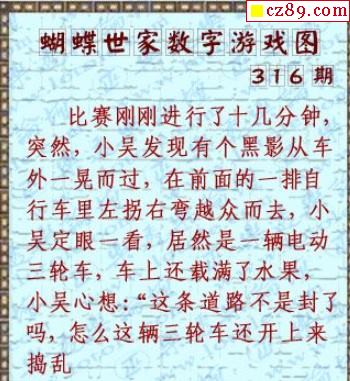 cz89.com
蝴蝶世家数字游戏图
316期
比赛刚刚进行了十几分钟，
突然，小吴发现有个黑影从车
外一晃而过，在前面的一排自
行车里左拐右弯越众而去，小
吴定眼一看，居然是一辆电动
三轮车，车上还载满了水果，
小吴心想：“这条道路不是封了
吗，怎么这辆三轮车还开上来
捣乱